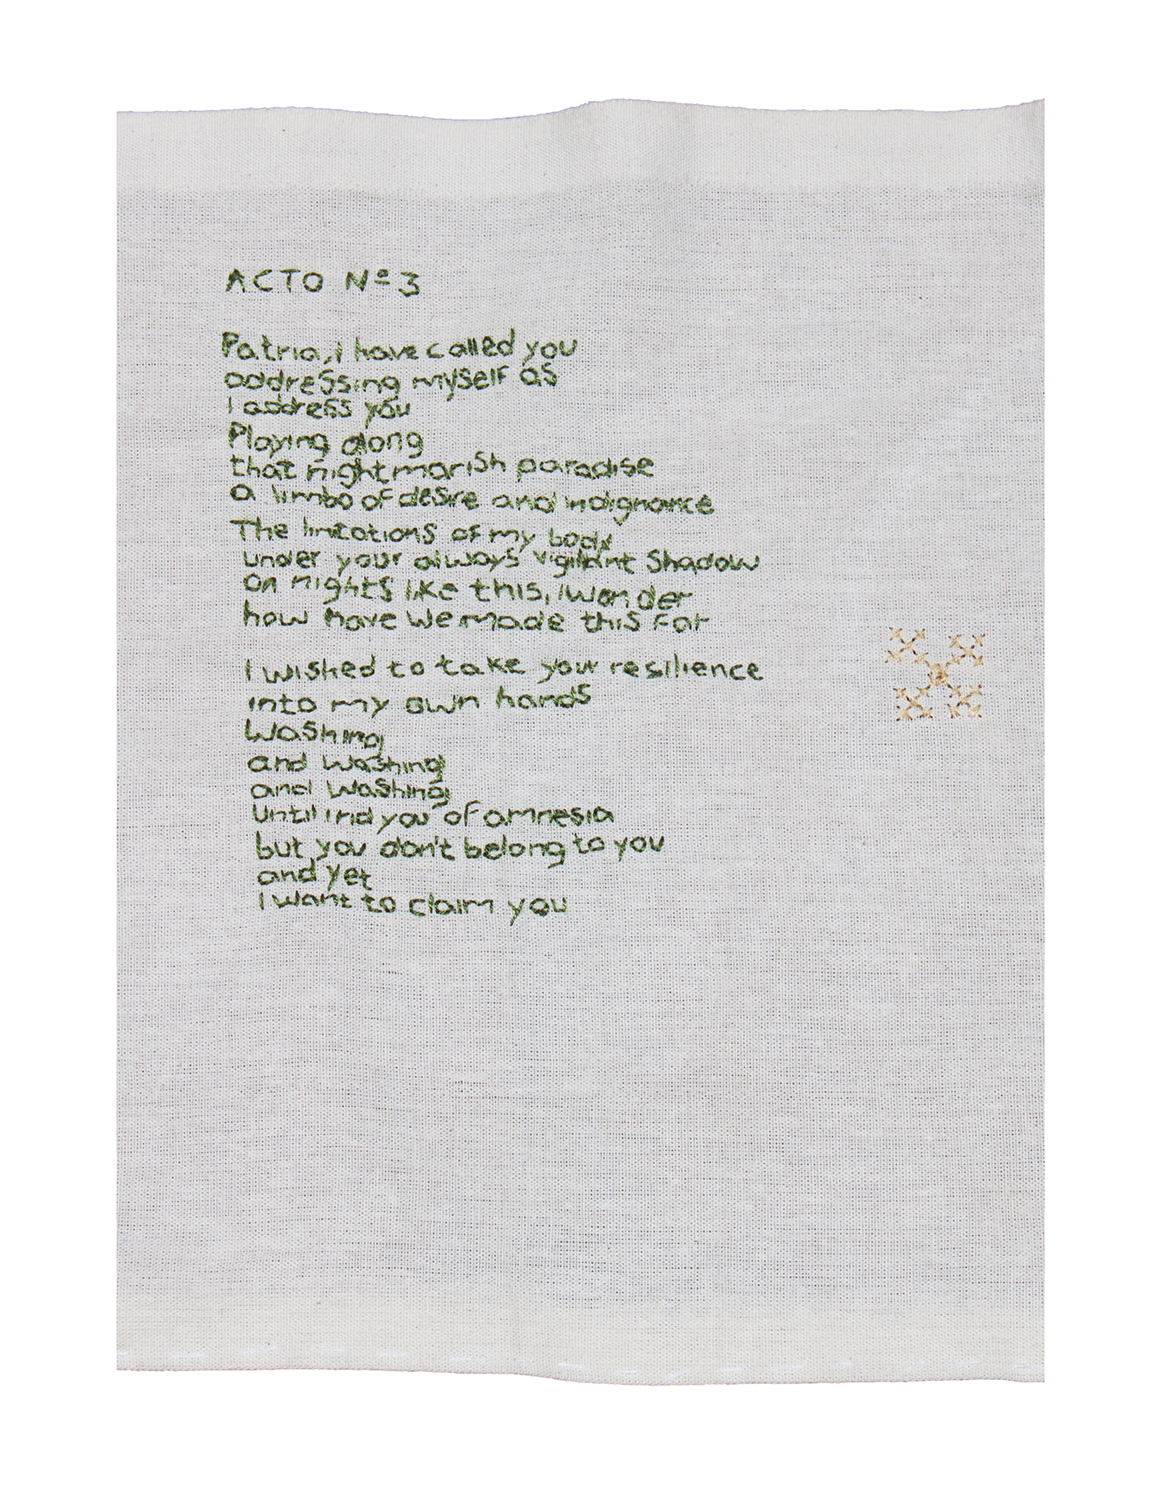 ACTO Nº3
Patria, i have called you
addressing myself as
I address you
Playing along
that nightmarish paradise
a limbo of desire and indignance
The limitations of my body
under your always vigilant shadow
On nights like this, I wonder
how have we made this far
I wished to take your resilience
into my own hands
Washing
and washing
and washing
Until i rid you of amnesia
but you don't belong to you
and yet
I want to claim you